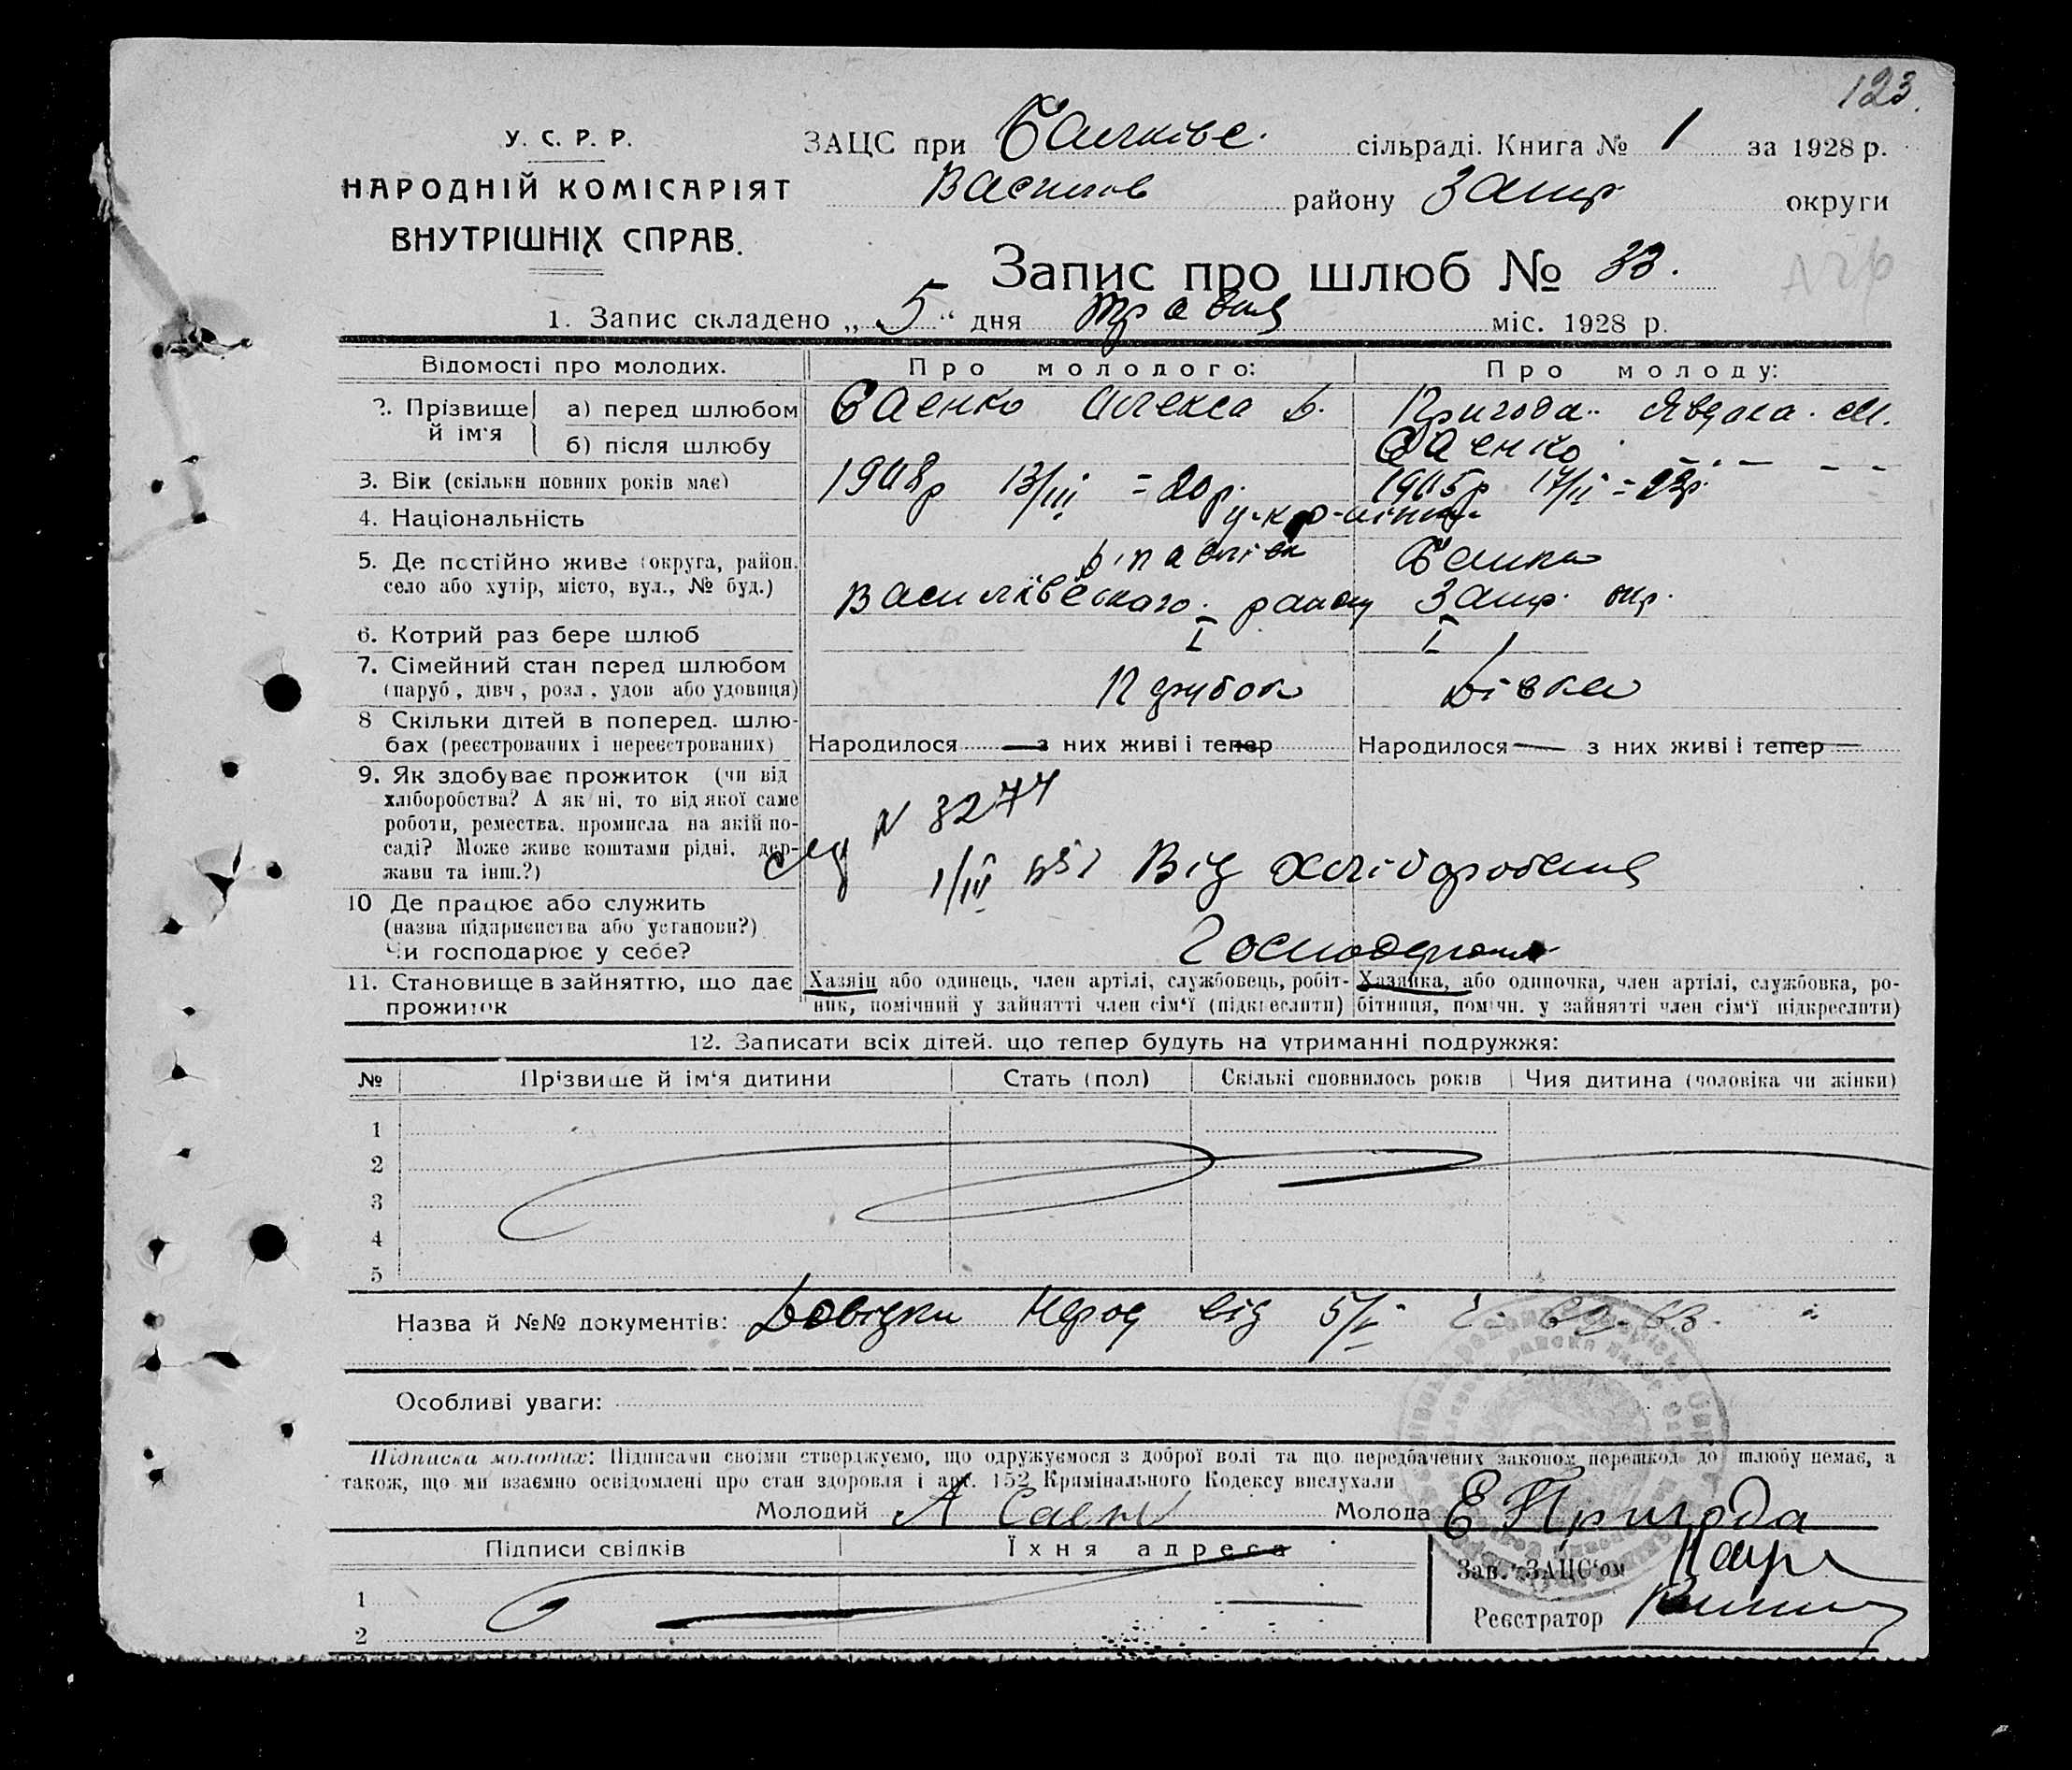 123.
У. С. Р. Р.
НАРОДНІЙ КОМІСАРІЯТ
ВНУТРІШНІХ СПРАВ.
ЗАЦС при сільраді. Книга № 1 за 1928 р.
Василів району Запор округи
Запис про шлюб № 33.
1. Запис складено „ 5 “ дня травня міс. 1928 р.
Відомості про молодих. Про молодого: Про молоду:
2. Прізвище й ім'я а) перед шлюбом Саенко Олекса Пригода Явдоха М.
б) після шлюбу Саенко
3. Вік (скільки повних років має) 1908р 13/III = 20 р. 1905р 17/II = 23р.
4. Національність
5. Де постійно живе (округа, район, село або хутір, місто, вул., № буд.)
Василівського району Запор. окр.
6. Котрий раз бере шлюб I I
7. Сімейний стан перед шлюбом (паруб, дівч, розл, удов або удовиця) Парубок Дівка
8 Скільки дітей в поперед. шлюбах (реєстрованих і нереєстрованих) Народилося — з них живі і тепер Народилося — з них живі і тепер —
9. Як здобуває прожиток (чи від хліборобства? А як ні, то від якої саме роботи, ремества, промисла на якій посаді? Може живе коштами рідні, держави та інш.?)
N 3274
Від хліборобства
10 Де працює або служить (назва підприємства або установи?) Чи господарює у себе?
11. Становище в зайняттю, що дає прожиток
Хазяін або одинець, член артілі, службовець, робітник, помічний у зайнятті член сім'ї (підкреслити)
Хазяйка, або одиночка, член артілі, службовка, робітниця, помічн. у зайнятті член сім'ї підкреслити)
12. Записати всіх дітей, що тепер будуть на утриманні подружжя:
№ Прізвище й ім'я дитини Стать (пол) Скількі сповнилось років Чия дитина (чоловіка чи жінки)
1
2
3
4
5
Назва й №№ документів: Довідки від
Особливі уваги:
Підписка молодих: Підписами своїми стверджуємо, що одружуємося з доброї волі та що передбачених законом перешкод до шлюбу немає, а
також, що ми взаємно освідомлені про стан здоровля і арт. 152 Кримінального Кодексу вислухали
Молодий А Саенко Молода Е Пригода
Підписи свідків Їхня адреса
Зав. ЗАЦС'ом
1
Реєстратор
2